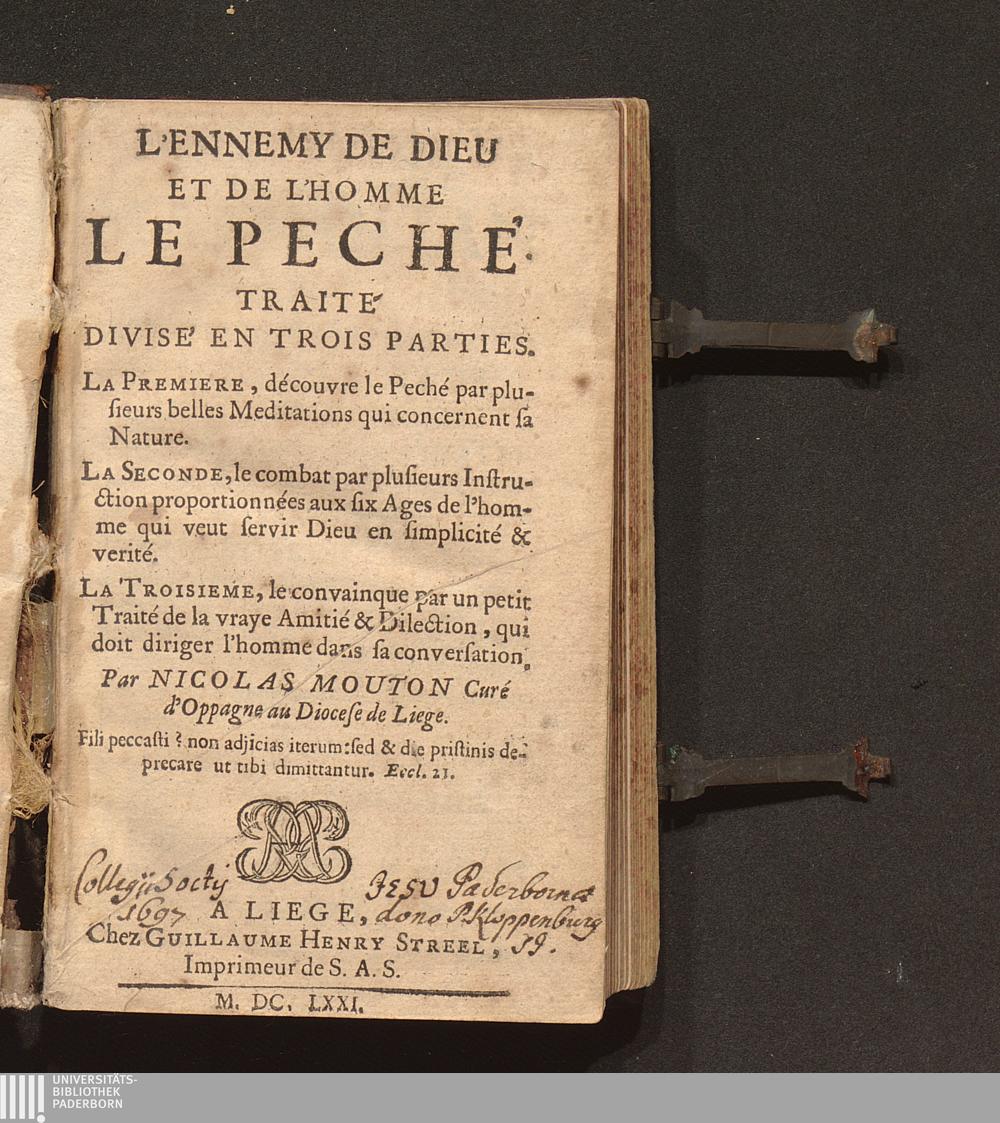 L'ENNEMY DE DIEU
ET DE L'HOMME
LE PECHÉ.
TRAITÉ
DIVISÉ EN TROIS PARTIES.
LA PREMIERE, découvre le Peché par plu-
ſieurs belles Meditations qui concernent ſa
Nature.
LA SECONDE, le combat par pluſieurs Inſtru-
ction proportionnées aux ſix Ages de l'hom-
me qui veut ſervir Dieu en ſimplicité &
verité.
LA TROISIEME, le convainque par un petit
Traité de la vraye Amitié & Dilection, qui
doit diriger l'homme dans ſa converſation.
Par NICOLAS MOUTON Curé
d'Oppagne au Dioceſe de Liege.
Fili peccaſti ? non adjicias iterum: ſed & de priſtinis de-
precare ut tibi dimittantur. Eccl. 21.
Collegij Soctis JESU Paderbornæ
1697 dono P. Kloppenburg
A LIEGE,
Chez GUILLAUME HENRY STREEL,
Imprimeur de S. A. S.
M. DC. LXXI.
UNIVERSITÄTS-
BIBLIOTHEK
PADERBORN